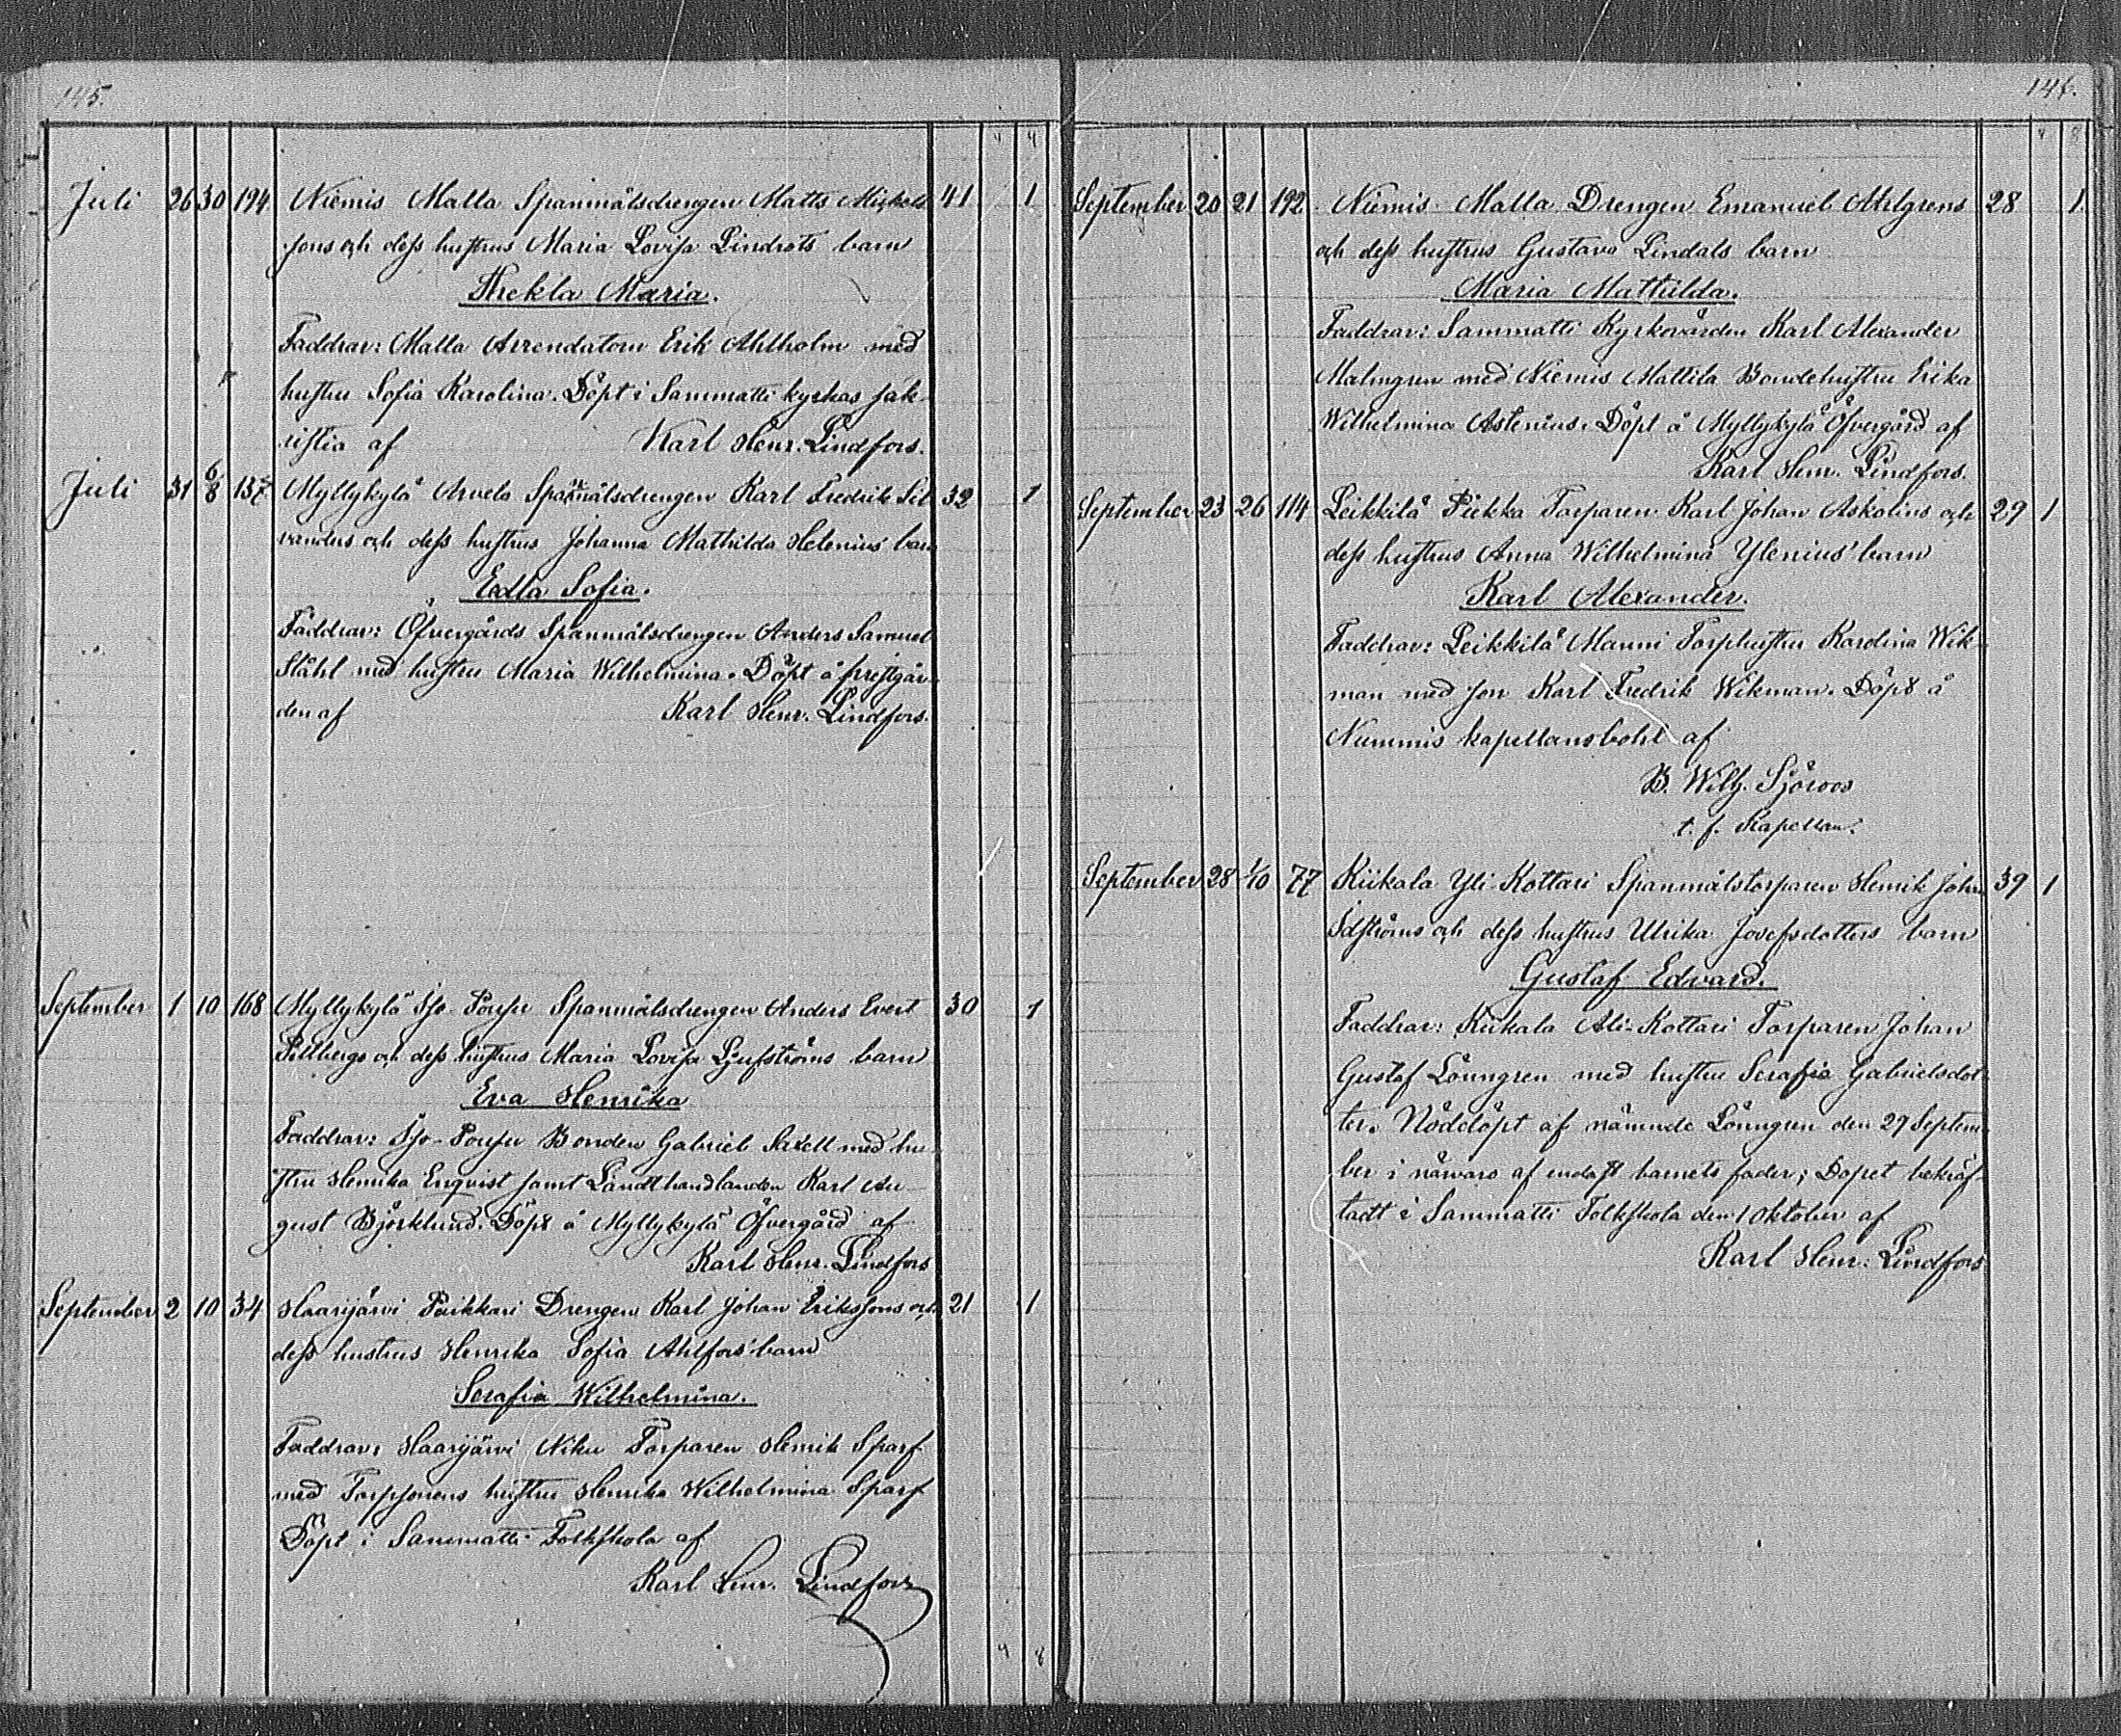 145.
Juli 26 30 194 Niemis Malla Spanmålsdrengen Matts Michels 41 1
sons och dess hustrus Maria Lovisa Lindrots barn
Thekla Maria.
Faddrar: Malla Arrendatorn Erik Ahlholm med
hustru Sofia Karolina. Döpt i Sammatti kyrkas sak-
ristia af Karl Henr. Lindfors.
Juli 31 6/8 137 Myllykylä Arvela Spanmålsdrengen Karl Fredrik Sil 32 1
vanders och dess hustrus Johanna Mathilda Helenius' barn
Edla Sofia.
Faddrar: Öfvergårds Spanmålsdrengen Anders Samuel
Ståhl med hustru Maria Wilhelmina. Döpt å prestgår-
den af Karl Henr. Lindfors.
September 1 10 168 Myllykylä Iso-Pousu Spanmålsdrengen Anders Evert 30 1
Pellbergs och dess hustrus Maria Lovisa Ljufströms barn
Eva Henrika
Faddrar: Iso-Pousu Bonden Gabriel Saxell med hu-
stru Henrika Enqvist samt Landthandlanden Karl Au-
gust Björklund. Döpt å Myllykylä Öfvergård af
Karl Henr. Lindfors
September 2 10 34 Haarijärvi Paikkari Drengen Karl Johan Erikssons och 21 1
dess hustrus Henrika Sofia Ahlfors' barn
Serafia Wilhelmina.
Faddrar: Haarijärvi Niku Torparen Henrik Sparf
med Torpsonens hustru Henrika Wilhelmina Sparf
Döpt i Sammatti Folkskola af
Karl Henr. Lindfors
146.
September 20 21 192 Niemis Malla Drengen Emanuel Ahlgrens 28 1
och dess hustrus Gustava Lindals barn
Maria Mathilda.
Faddrar: Sammatti Kyrkovärden Karl Alexander
Malmgren med Niemis Mattila Bondehustru Erika
Wilhelmina Astenius. Döpt å Myllykylä Öfvergård af
Karl Henr. Lindfors.
September 23 26 114 Leikkilä Piekka Torparen Karl Johan Askolins och 29 1
dess hustrus Anna Wilhelmina Ylenius' barn
Karl Alexander.
Faddrar: Leikkilä Manni Torphustru Karolina Wik-
man med son Karl Fredrik Wikman. Döpt å
Nummis kapellansbohl af
B. Wilh. Sjöroos
t. f. Kapellan.
September 28 1/10 77 Kiikala Yli-Kottari Spanmålstorparen Henrik Johan 39 1
Idströms och dess hustrus Ulrika Josefsdotters barn
Gustaf Edvard.
Faddrar: Kiikala Ali-Kottari Torparen Johan
Gustaf Lönngren med hustru Serafia Gabrielsdot-
ter. Nöddöpt af nämnde Lönngren den 29 Septem-
ber i närvaro af endast barnets fader; Dopet bekräf-
tadt i Sammatti Folkskola den 1 Oktober af
Karl Henr. Lindfors